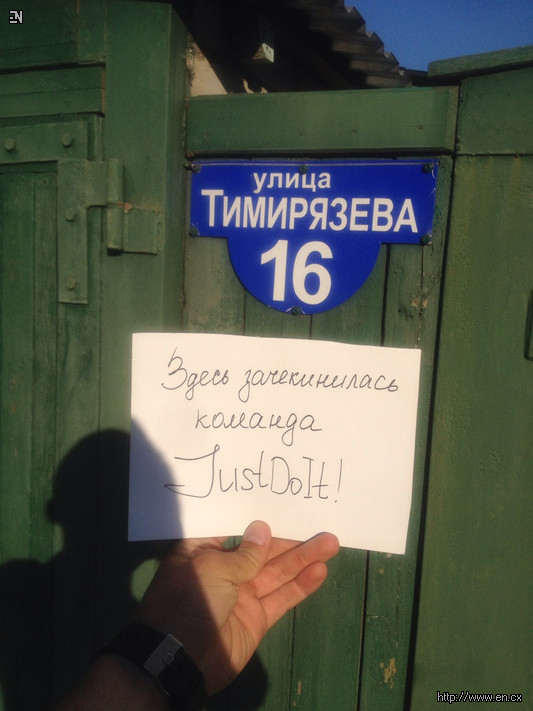 EN
улица
ТИМИРЯЗЕВА
16
Здесь зачекинилась
команда
JustDoIt!
http://www.en.cx